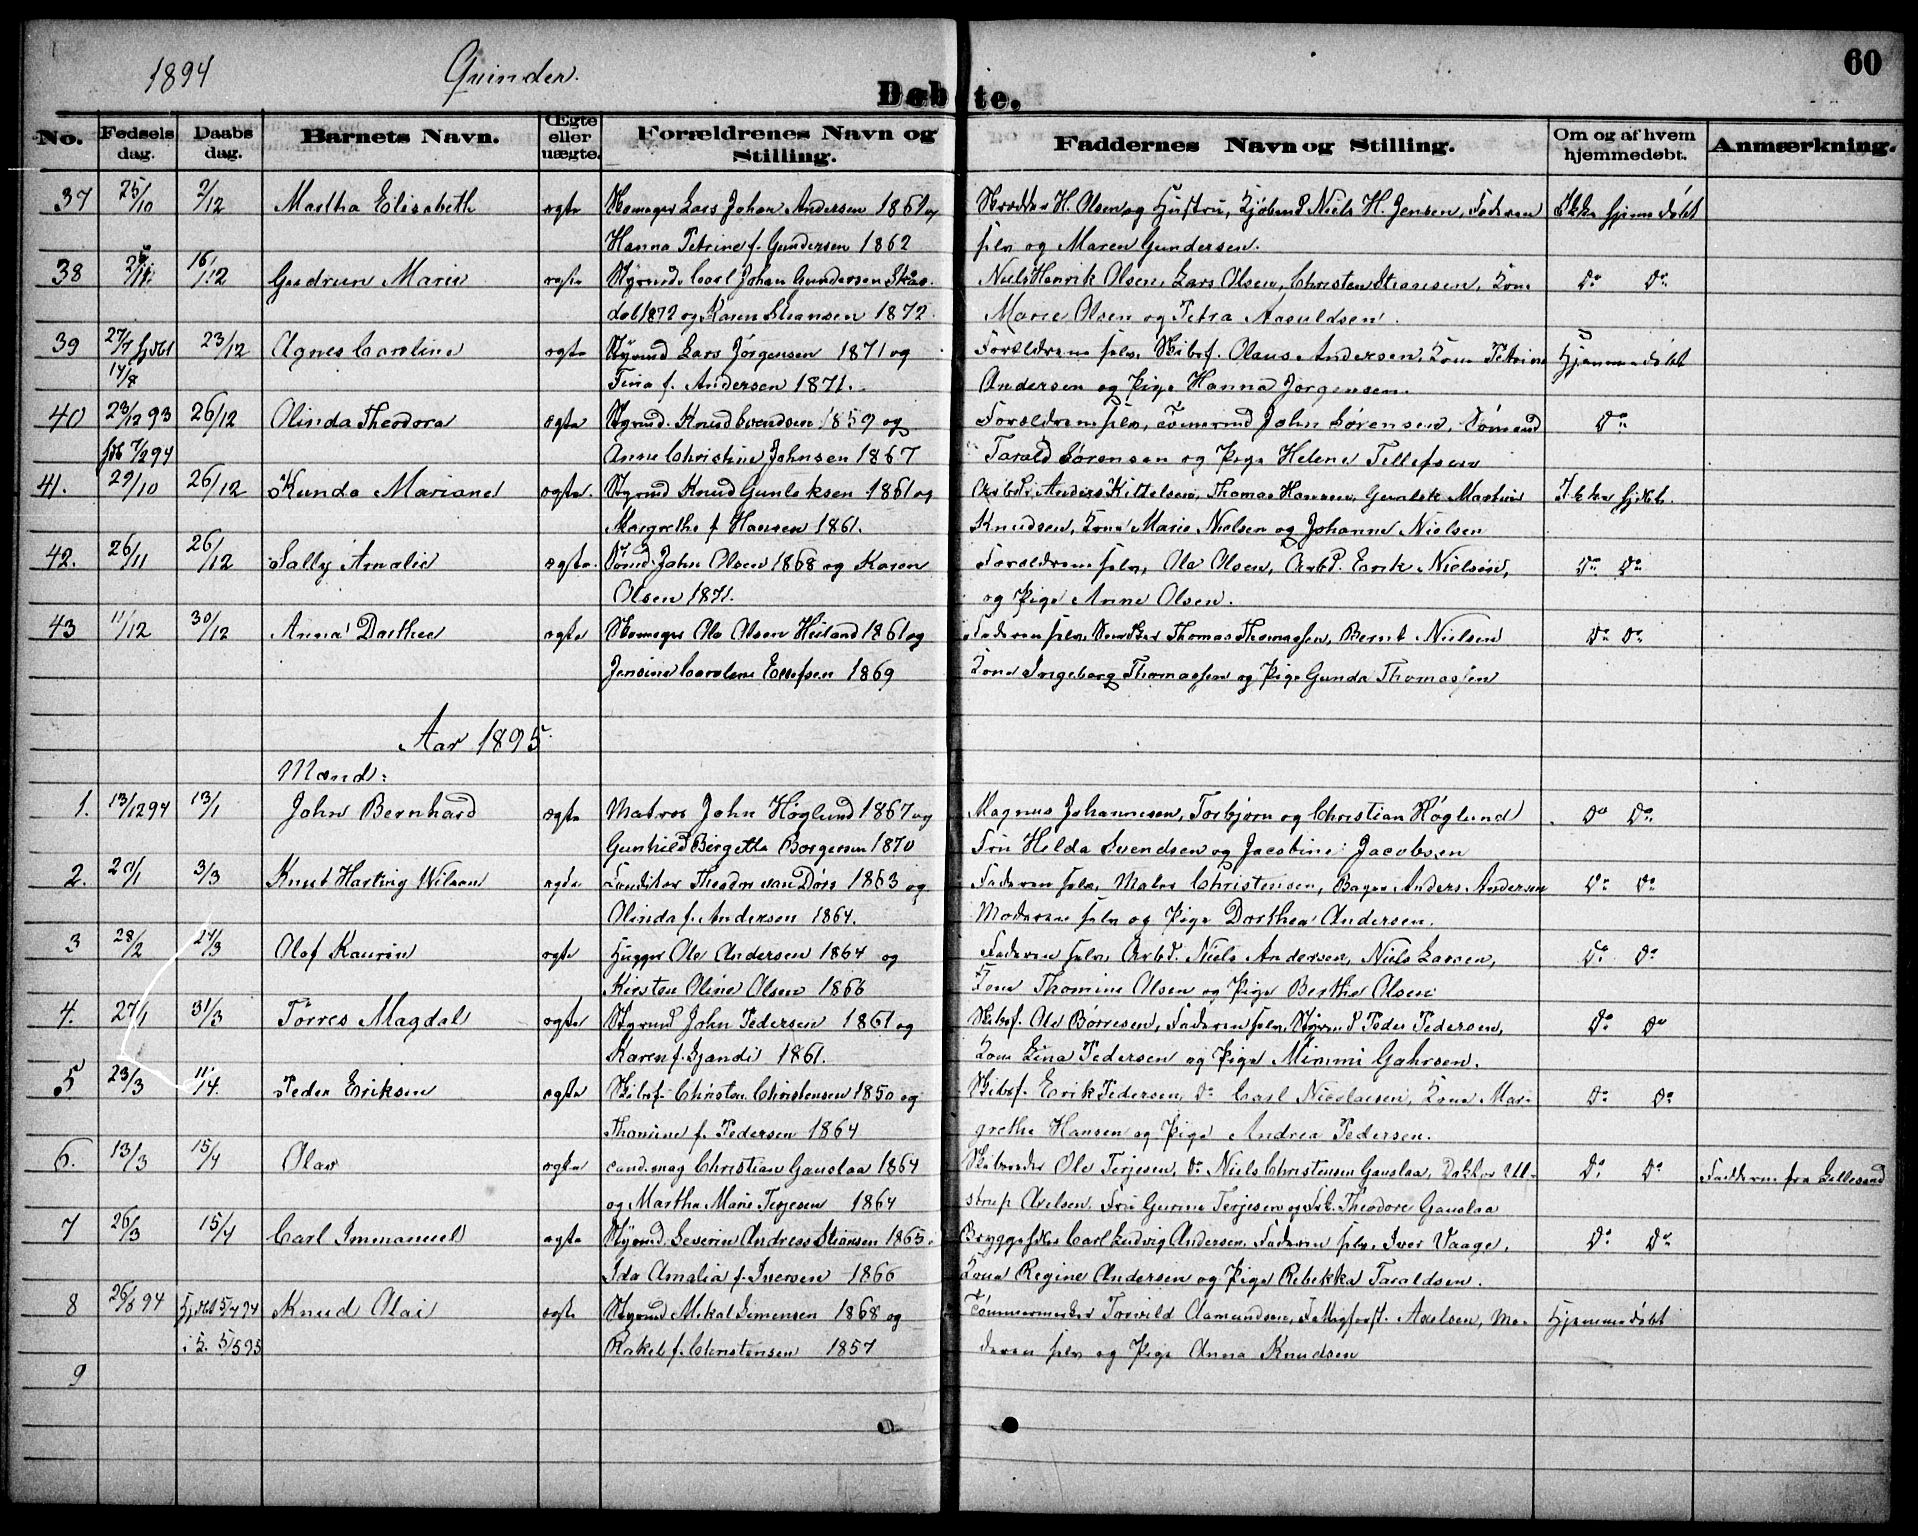 1894 Qvinder.
60
Døbte.
No. Fødselsdag. Daabsdag. Barnets Navn. Ægte eller uægte. Forældrenes Navn og Stilling. Faddernes Navn og Stilling. Om og af hvem hjemmedøbt. Anmærkning.
37 25/10 2/12 Martha Elisabeth ægte Skomager Lars Johan Andersen 1861 og Skrædder H. Olsen og Hustru, Kjøbmd Niels H. Jensen, Faderen Ikke hjemmedøbt
Hanna Petrine f. Gundersen 1862 selv og Maren Gundersen.
38 16/12 Gudrun Marie ægte Styrmd. Carl Johan Gundersen Skaa- Niels Henrik Olsen, Lars Olsen, Christen Stiansen, Kone Do Do
dal 1872 og Karen Stiansen 1872. Marie Olsen og Petra Aasuldsen.
39 27/7 hjdbt 23/12 Agnes Caroline ægte Styrmd Lars Jørgensen 1871 og Forældrene selv, Skibsf. Olaus Andersen, Kone Petrine Hjemmedøbt
14/8 Tina f. Andersen 1871. Andersen og Pige Hanna Jørgensen.
40 23/12 93 26/12 Olinda Theodora ægte Styrmd. Knud Svendsen 1859 og Forældrene selv, Tømmermd John Sørensen, Sømand Do
7/2 94 Anne Christine Johnsen 1867 Tarald Sørensen og Pige Helene Tellefsen
41. 29/10 26/12 Kunda Mariane ægte. Styrmd Knud Gunleksen 1861 og Arbd. Anders Kittelsen, Thomas Hansen, Martin Ikke hjdbt.
Margrethe f. Hansen 1861. Knudsen, Kone Marie Nielsen og Johanne Nielsen
42. 26/11 26/12 Sally Amalie ægte. Sømd. John Olsen 1868 og Karen Forældrene selv, Ole Olsen, Arbd. Erik Nielsen, Do Do
Olsen 1871. og Pige Anne Olsen.
43 11/12 30/12 Anna Dorthea ægte Skomager Ole Olsen Heiland 1861 og Faderen selv, Snedker Thomas Thomassen, Bernt Nielsen Do Do
Jensine Caroline Ellefsen 1869 Kone Ingeborg Thomassen og Pige Gunda Thomassen
Aar 1895.
Mænd:
1. 13/12 94 13/1 John Bernhard ægte Matros John Høglund 1867 og Magnus Johannesen, Torbjørn og Christian Høglund Do Do
Gunhild Birgethe Borgersen 1870 Fru Helda Svendsen og Jacobine Jacobsen
2. 20/1 3/3 Knut Harting Wilson ægte Konditor Theodor van Dørs 1863 og Faderen selv, Maler Christensen, Bager Anders Andersen Do Do
Olinda f. Andersen 1864. Moderen selv og Pige Dorthea Andersen.
3 28/2 24/3 Olof Kaurin ægte Hugger Ole Andersen 1864 og Faderen selv, Arbd. Niels Andersen, Niels Larsen, Do Do
Kirsten Oline Olsen 1866 Kone Thomine Olsen og Pige Berthe Olsen
4. 27/1 31/3 Törres Magdal ægte Styrmd John Pedersen 1861 og Skibsf. Ole Børresen, Faderen selv, Styrmd Peder Pedersen, Do Do
Karen f. Gjandi 1861. Kone Lina Pedersen og Pige Mimmi Gahrsen.
5 23/3 11/4. Peder Eriksen ægte Skibsf. Christen Christensen 1850 og Skibsf. Erik Pedersen, Do Carl Nicolaisen, Kone Mar- Do Do
Thomine f. Pedersen 1864 grethe Hansen og Pige Andrea Pedersen.
6. 13/3 15/4 Olav ægte cand. mag Christian Gauslaa 1864 Skibsreder Ole Terjesen, Do Niels Christensen Gauslaa, Doktor Ul- Do Do Fadderne fra Lillesand
og Martha Marie Terjesen 1864 strup Axelsen, Fru Gurine Terjesen og Frk. Theodore Gauslaa
7 26/3 15/4 Carl Immanuel ægte Styrmd. Severin Andreas Stiansen 1865. Carl Ludvig Andersen, Faderen selv, Iver Vaage, Do Do
Ida Amalia f. Iversen 1866 Kone Regine Andersen og Pige Rebekka Taraldsen.
8 26/3 94 Hjdbt 5/4 94 Knud Olai ægte Styrmd Mikal Simonsen 1868 og Tømmermester Torvild Aamundsen, Axelsen, Mo- Hjemmedøbt
i K. 5/5 95 Rakel f. Christensen 1857 deren selv og Pige Anna Knudsen
9